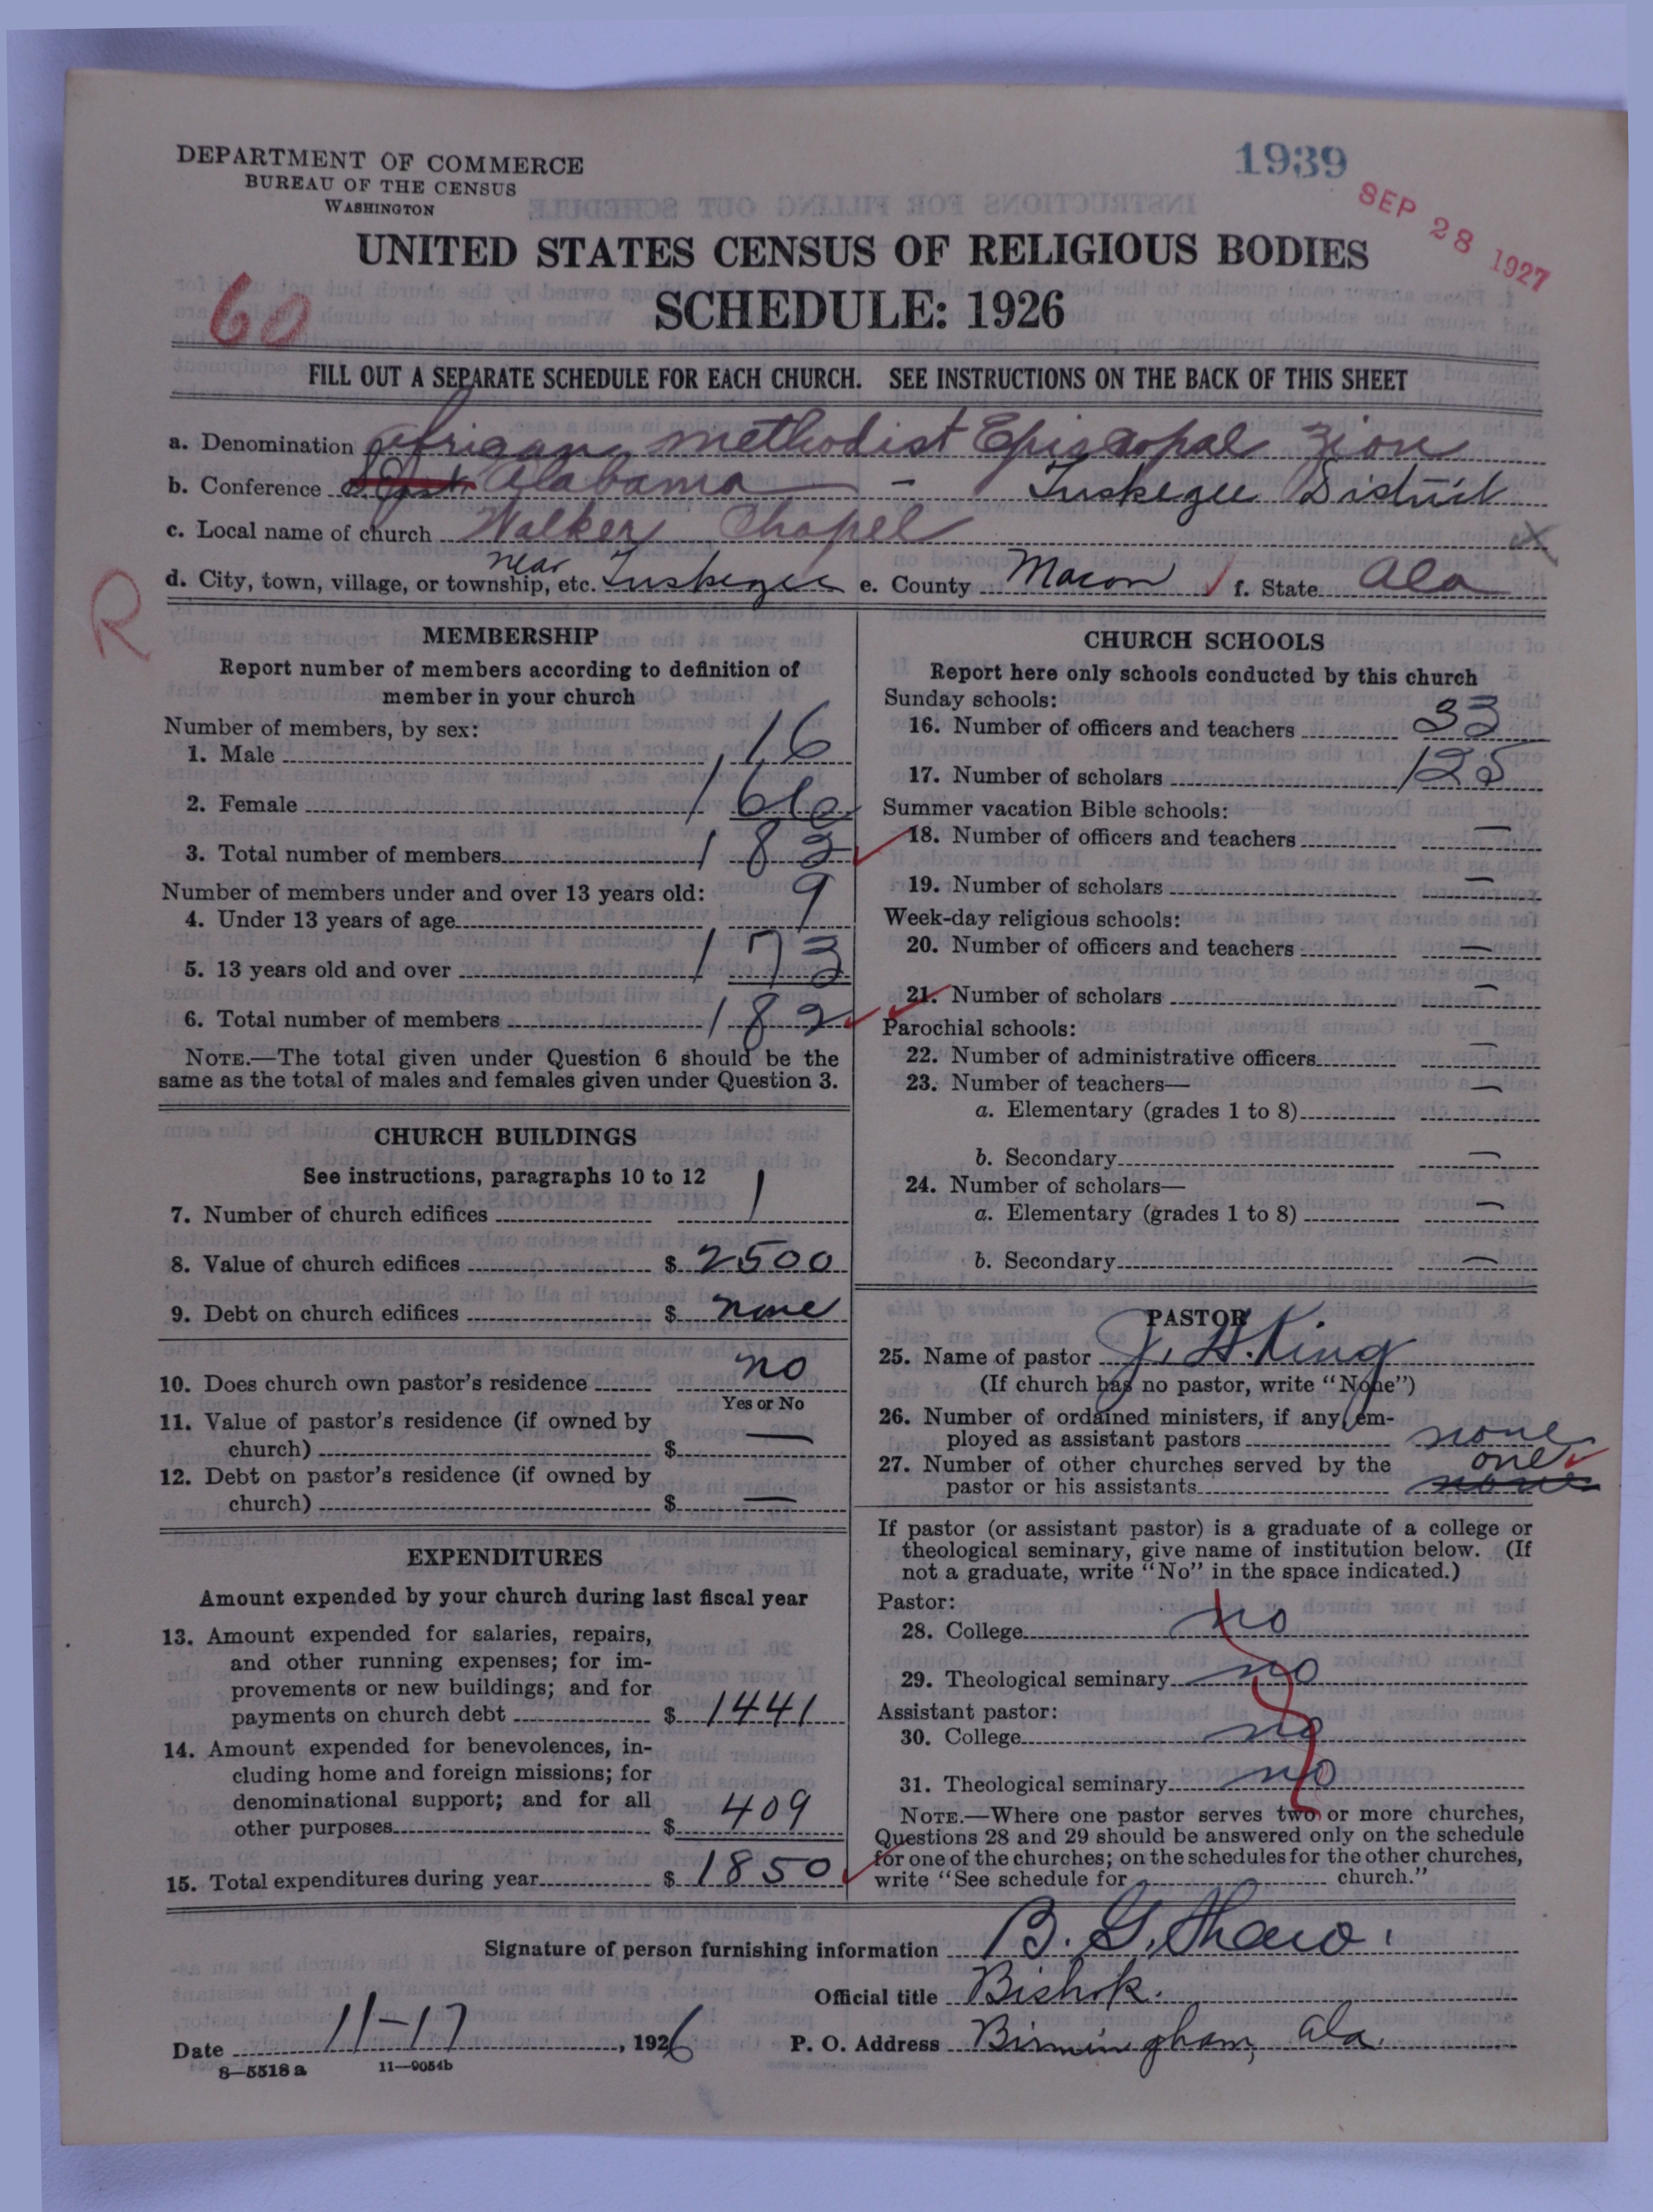 DEPARTMENT OF COMMERCE
BUREAU OF THE CENSUS
WASHINGTON
1939
SEP 28 1927
UNITED STATES CENSUS OF RELIGIOUS BODIES
SCHEDULE: 1926
60
FILL OUT A SEPARATE SCHEDULE FOR EACH CHURCH. SEE INSTRUCTIONS ON THE BACK OF THIS SHEET
a. Denomination African Methodist Episcopal Zion
b. Conference East Alabama - Tuskegee District
c. Local name of church Walker Chapel
d. City, town, village, or township, etc. near Tuskegee e. County Macon f. State Ala
R
MEMBERSHIP
Report number of members according to definition of
member in your church
Number of members, by sex:
1. Male 16
2. Female 166
3. Total number of members 182
Number of members under and over 13 years old:
4. Under 13 years of age 9
5. 13 years old and over 173
6. Total number of members 182
NOTE.—The total given under Question 6 should be the
same as the total of males and females given under Question 3.
CHURCH BUILDINGS
See instructions, paragraphs 10 to 12
7. Number of church edifices 1
8. Value of church edifices $ 2500
9. Debt on church edifices $ none
10. Does church own pastor's residence no
Yes or No
11. Value of pastor's residence (if owned by
church) $ —
12. Debt on pastor's residence (if owned by
church) $ —
EXPENDITURES
Amount expended by your church during last fiscal year
13. Amount expended for salaries, repairs,
and other running expenses; for im-
provements or new buildings; and for
payments on church debt $ 1441
14. Amount expended for benevolences, in-
cluding home and foreign missions; for
denominational support; and for all
other purposes $ 409
15. Total expenditures during year $ 1850
CHURCH SCHOOLS
Report here only schools conducted by this church
Sunday schools:
16. Number of officers and teachers 33
17. Number of scholars 125
Summer vacation Bible schools:
18. Number of officers and teachers —
19. Number of scholars —
Week-day religious schools:
20. Number of officers and teachers —
21. Number of scholars —
Parochial schools:
22. Number of administrative officers —
23. Number of teachers— —
a. Elementary (grades 1 to 8)
b. Secondary —
24. Number of scholars—
a. Elementary (grades 1 to 8) —
b. Secondary —
PASTOR
25. Name of pastor J. H. King
(If church has no pastor, write "None")
26. Number of ordained ministers, if any, em-
ployed as assistant pastors none
27. Number of other churches served by the one
pastor or his assistants none
If pastor (or assistant pastor) is a graduate of a college or
theological seminary, give name of institution below. (If
not a graduate, write "No" in the space indicated.)
Pastor:
28. College no
29. Theological seminary no
Assistant pastor:
30. College no
31. Theological seminary no
NOTE.—Where one pastor serves two or more churches,
Questions 28 and 29 should be answered only on the schedule
for one of the churches; on the schedules for the other churches,
write "See schedule for church."
Signature of person furnishing information B. G. Shaw.
Official title Bishop.
Date 11-17, 1926 P. O. Address Birmingham, Ala.
8—5518 a 11—9054b